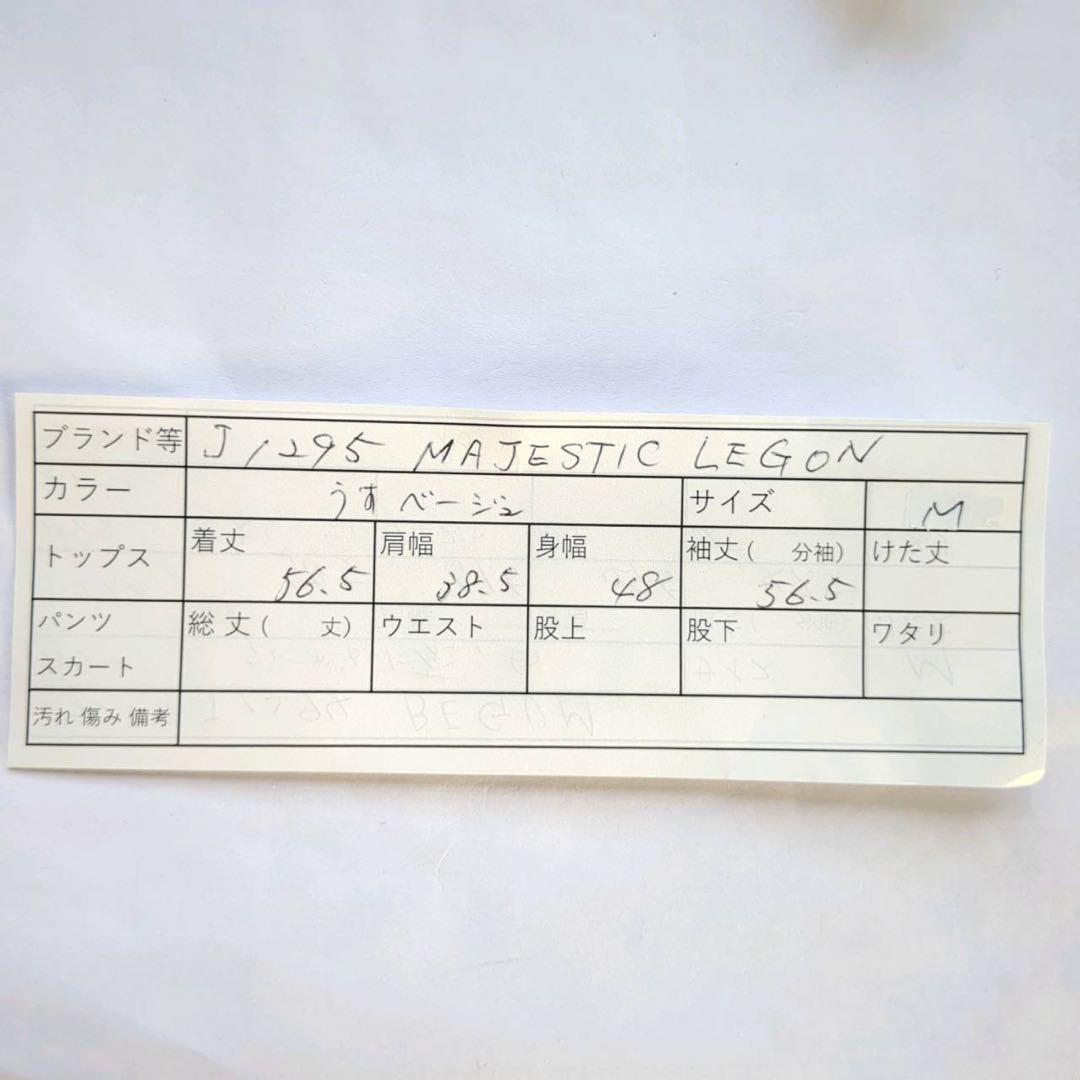 ブランド等 J1295 MAJESTIC LEGON
カラー うすベージュ サイズ M
トップス 着丈 56.5 肩幅 38.5 身幅 48 袖丈( 分袖) 56.5 けた丈
パンツ スカート 総丈( 丈) ウエスト 股上 股下 ワタリ
汚れ 傷み 備考